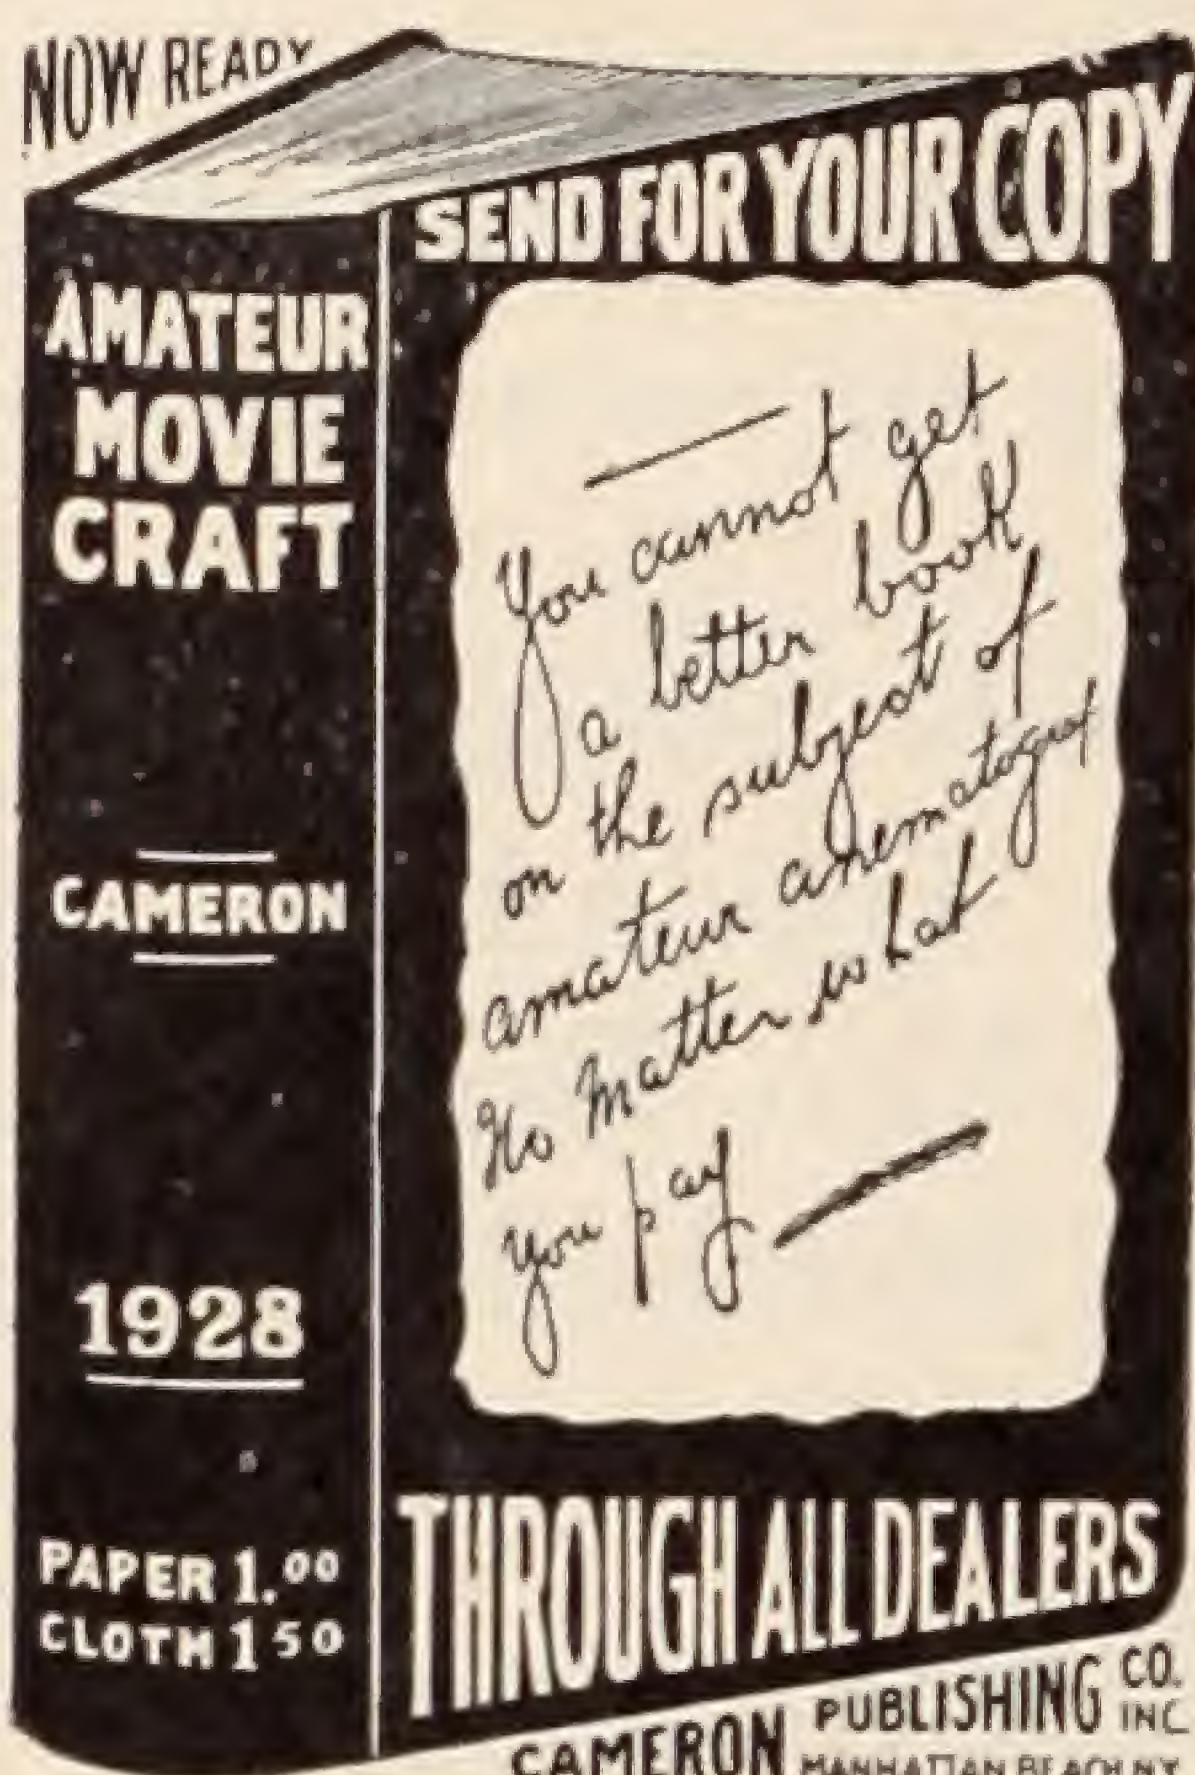 NOW READY
SEND FOR YOUR COPY
AMATEUR
MOVIE
CRAFT
CAMERON
1928
PAPER 1.00
CLOTH 1 50
You cannot get
a better book
on the subject of
amateur cinematogra
No Matter what
you pay
THROUGH ALL DEALERS
CAMERON PUBLISHING CO. INC
MANHATTAN BEACH N.Y.